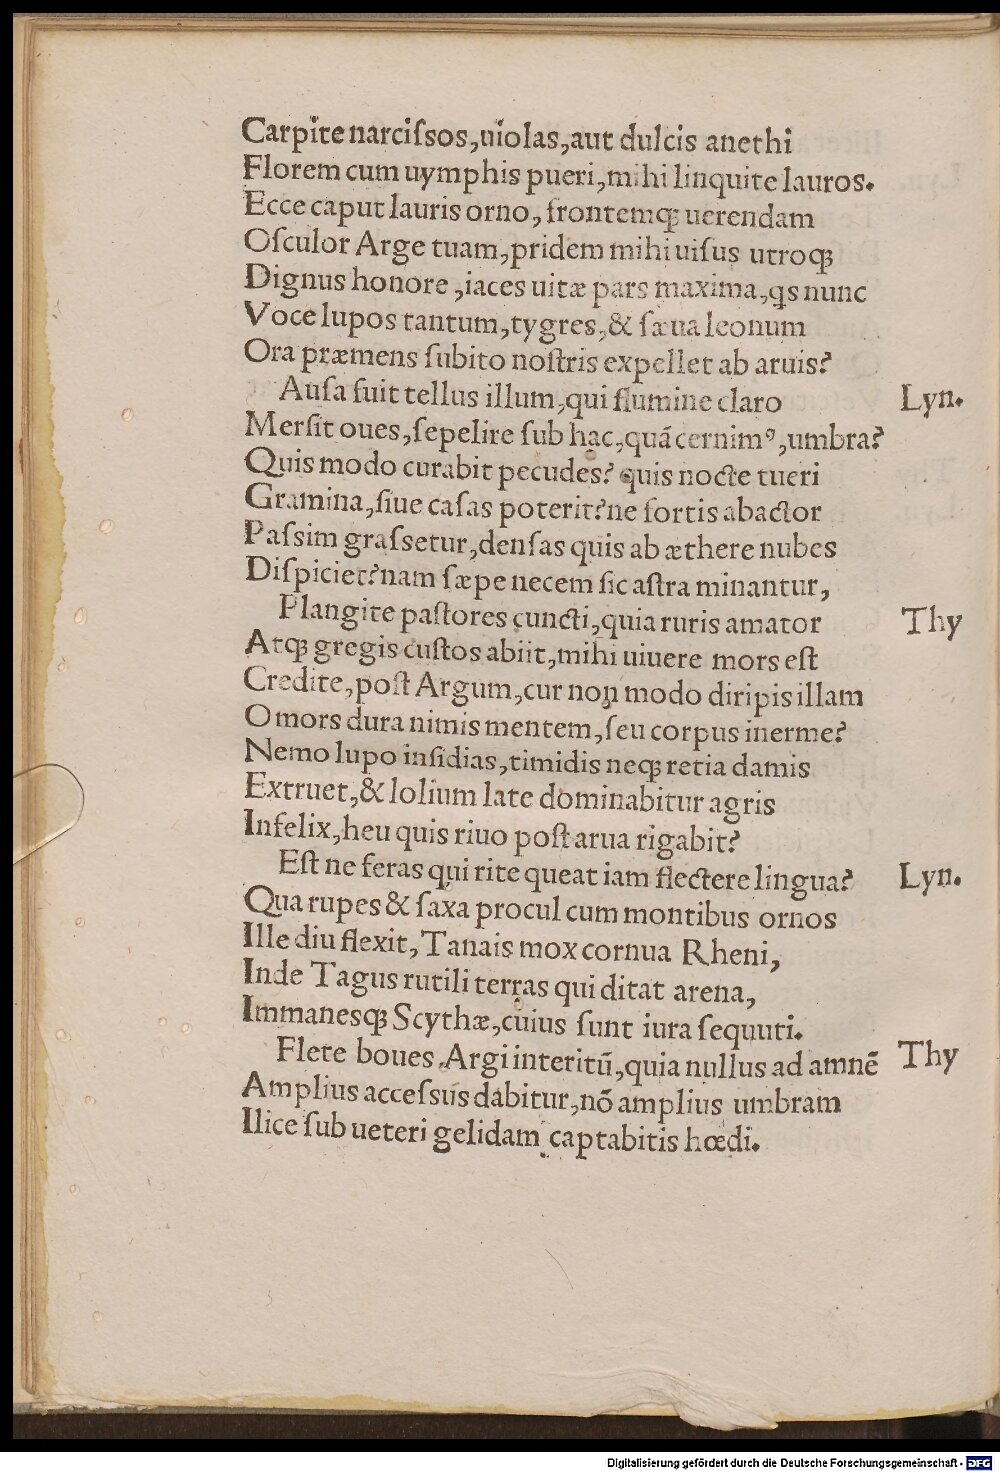 Carpite narciſsos,uiolas,aut dulcis anethi
Florem cum uymphis pueri,mihi linquite lauros.
Ecce caput lauris orno, frontemqꝫ uerendam
Oſculor Arge tuam,pridem mihi uiſus utroqꝫ
Dignus honore ,iaces uitæ pars maxima,qs nunc
Voce lupos tantum,tygres,& ſæua leonum
Ora præmens ſubito noſtris expellet ab aruis?
Auſa fuit tellus illum,qui flumine claro Lyn.
Merſit oues,ſepelire ſub hac,quā cernimꝰ,umbra?
Quis modo curabit pecudes? quis nocte tueri
Gramina,ſiue caſas poterit?ne fortis abactor
Paſsim graſsetur,denſas quis ab æthere nubes
Diſpiciet?nam ſæpe necem ſic aſtra minantur,
Plangite paſtores cuncti,quia ruris amator Thy
Atqꝫ gregis cuſtos abiit,mihi uiuere mors eſt
Credite,poſt Argum,cur non modo diripis illam
O mors dura nimis mentem,ſeu corpus inerme?
Nemo lupo inſidias,timidis neqꝫ retia damis
Extruet,& lolium late dominabitur agris
Infelix,heu quis riuo poſt arua rigabit?
Eſt ne feras qui rite queat iam flectere lingua? Lyn.
Qua rupes & ſaxa procul cum montibus ornos
Ille diu flexit,Tanais mox cornua Rheni,
Inde Tagus rutili terras qui ditat arena,
Immanesqꝫ Scythæ,cuius ſunt iura ſequuti.
Flete boues Argi interitū,quia nullus ad amnē Thy
Amplius acceſsus dabitur,nō amplius umbram
Ilice ſub ueteri gelidam captabitis hœdi.
Digitalisierung gefördert durch die Deutsche Forschungsgemeinschaft - DFG